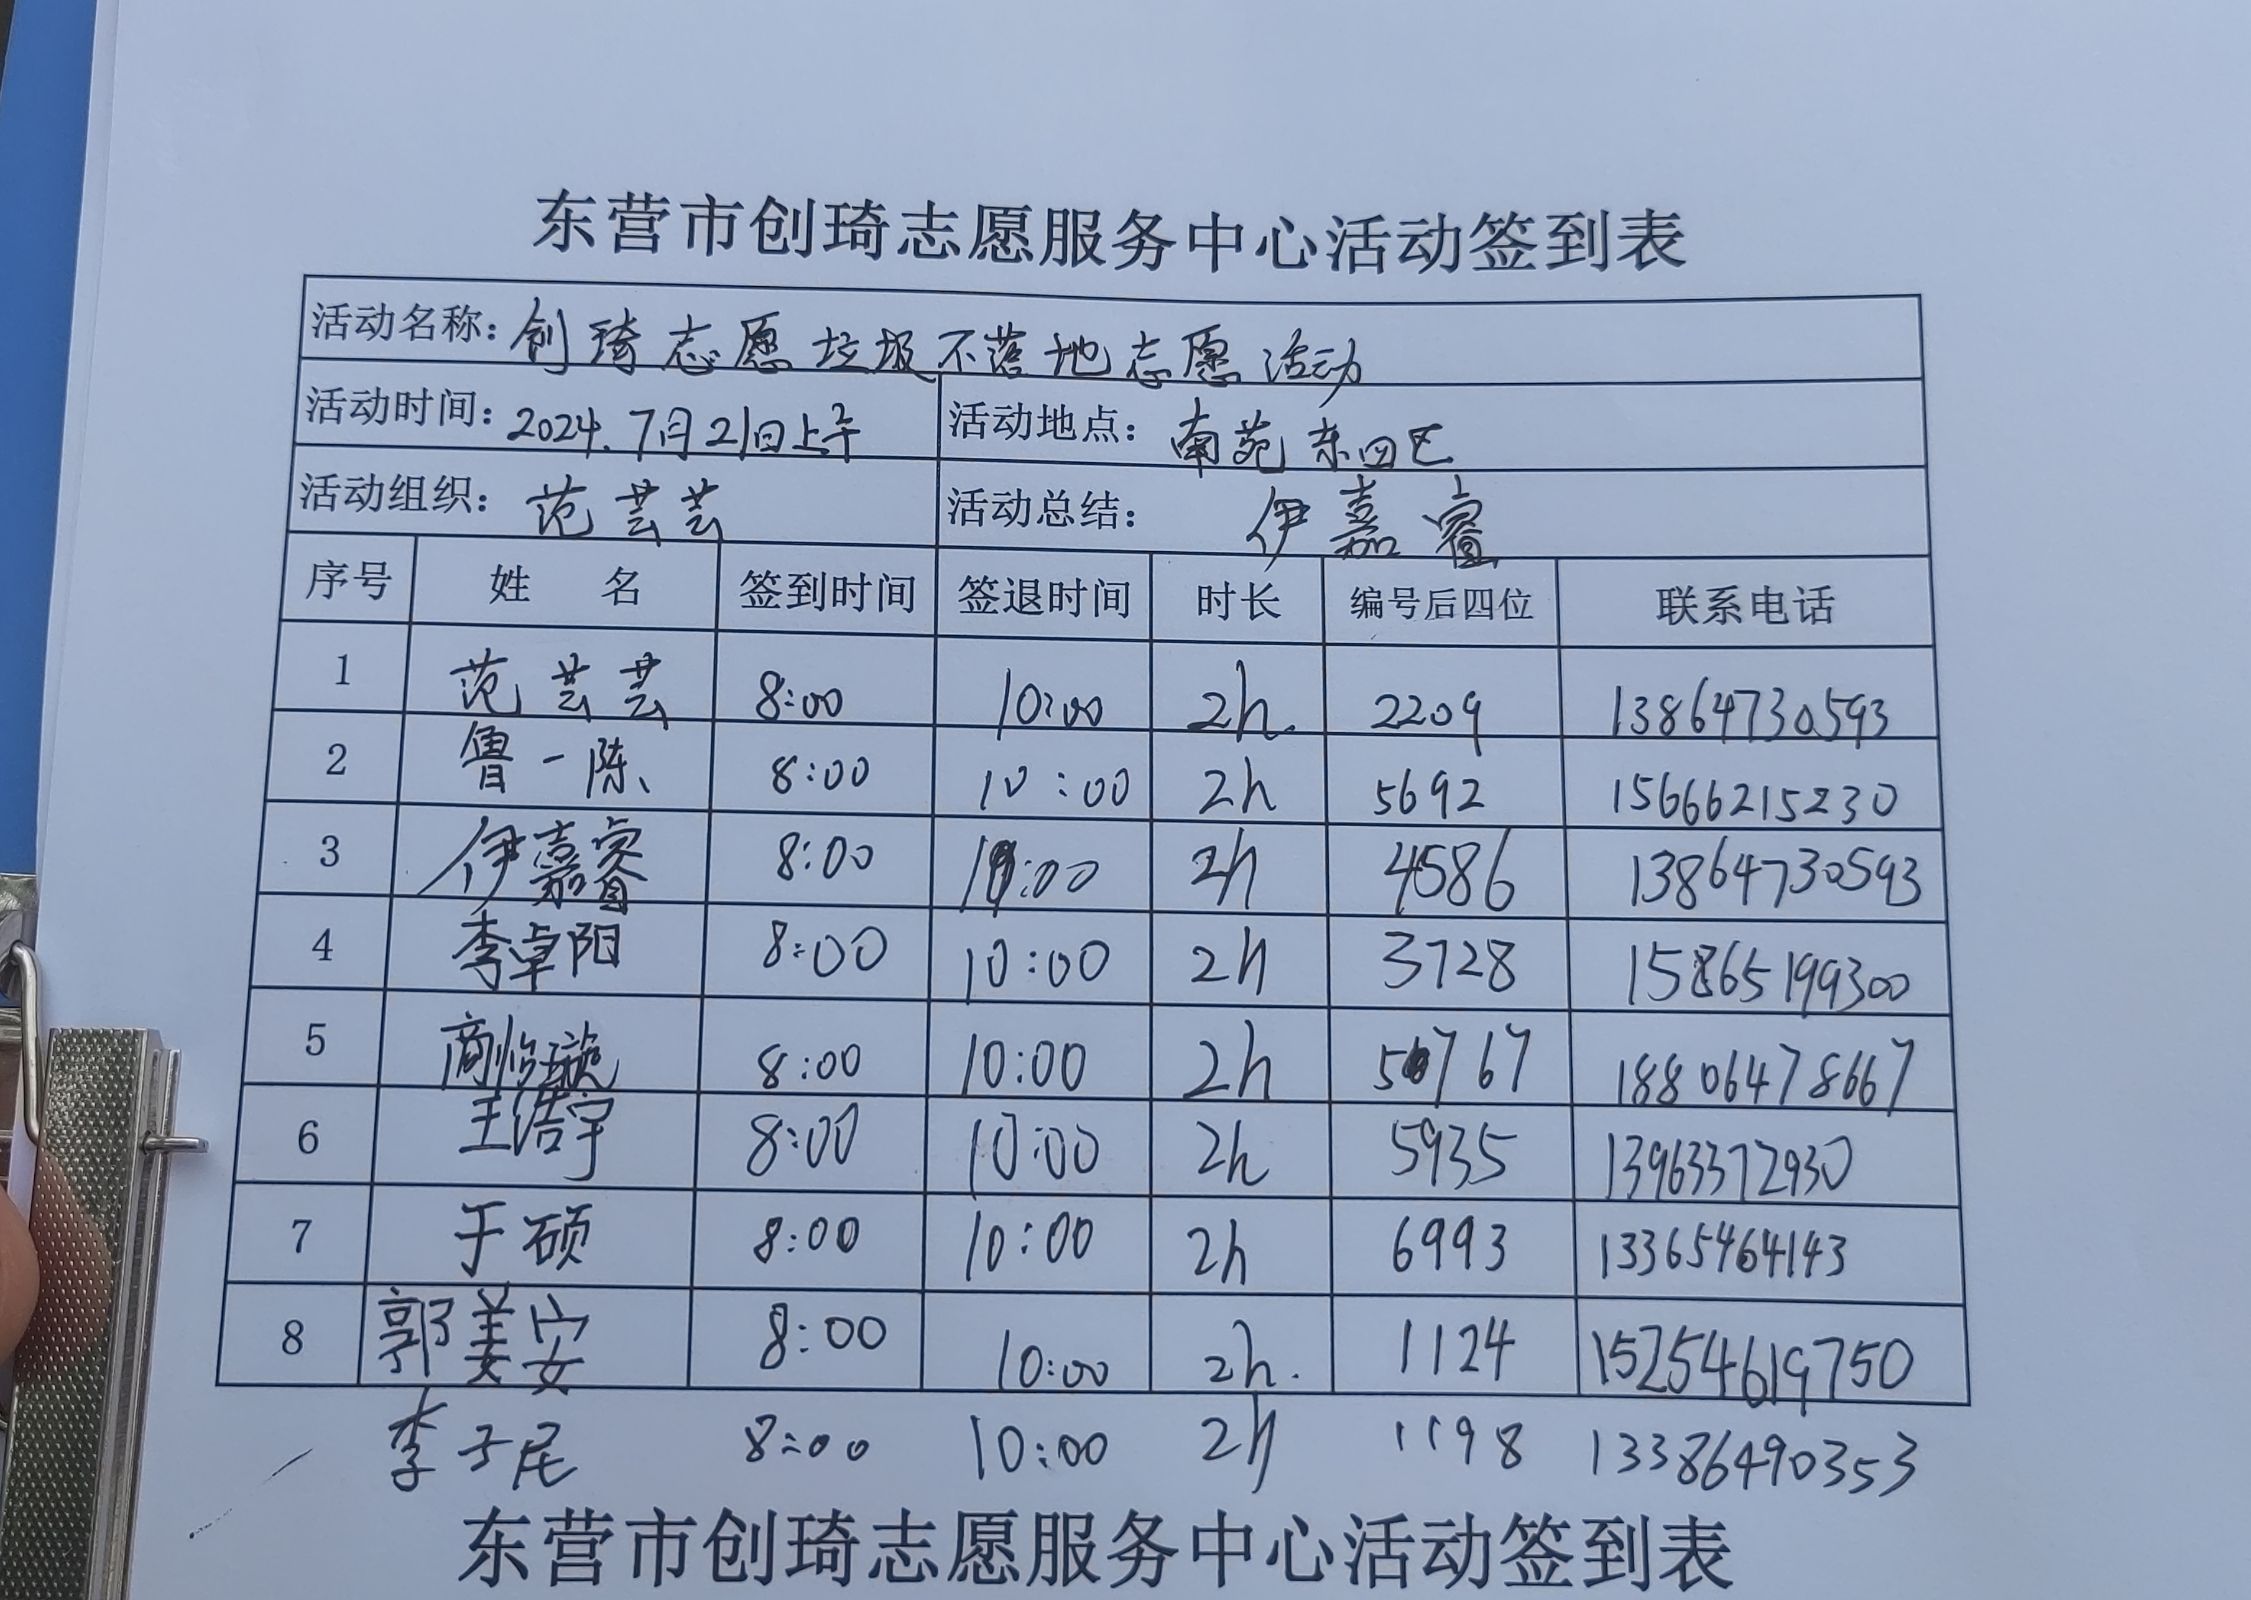 东营市创琦志愿服务中心活动签到表
活动名称：创琦志愿垃圾不落地志愿活动
活动时间：2024.7月21日上午 活动地点：南苑东四区
活动组织：范芸芸 活动总结：伊嘉睿
序号 姓名 签到时间 签退时间 时长 编号后四位 联系电话
1 范芸芸 8:00 10:00 2h. 2209 13864730593
2 鲁一陈 8:00 10:00 2h 5692 15666215230
3 伊嘉睿 8:00 10:00 2h 4586 13864730593
4 李卓阳 8:00 10:00 2h 3728 15865199300
5 商 8:00 10:00 2h 5767 18806478667
6 王浩宇 8:00 10:00 2h 5935 13963372930
7 于硕 8:00 10:00 2h 6993 13365464143
8 郭姜安 8:00 10:00 2h. 1124 15254619750
李子尾 8:00 10:00 2h 1198 13386490353
东营市创琦志愿服务中心活动签到表